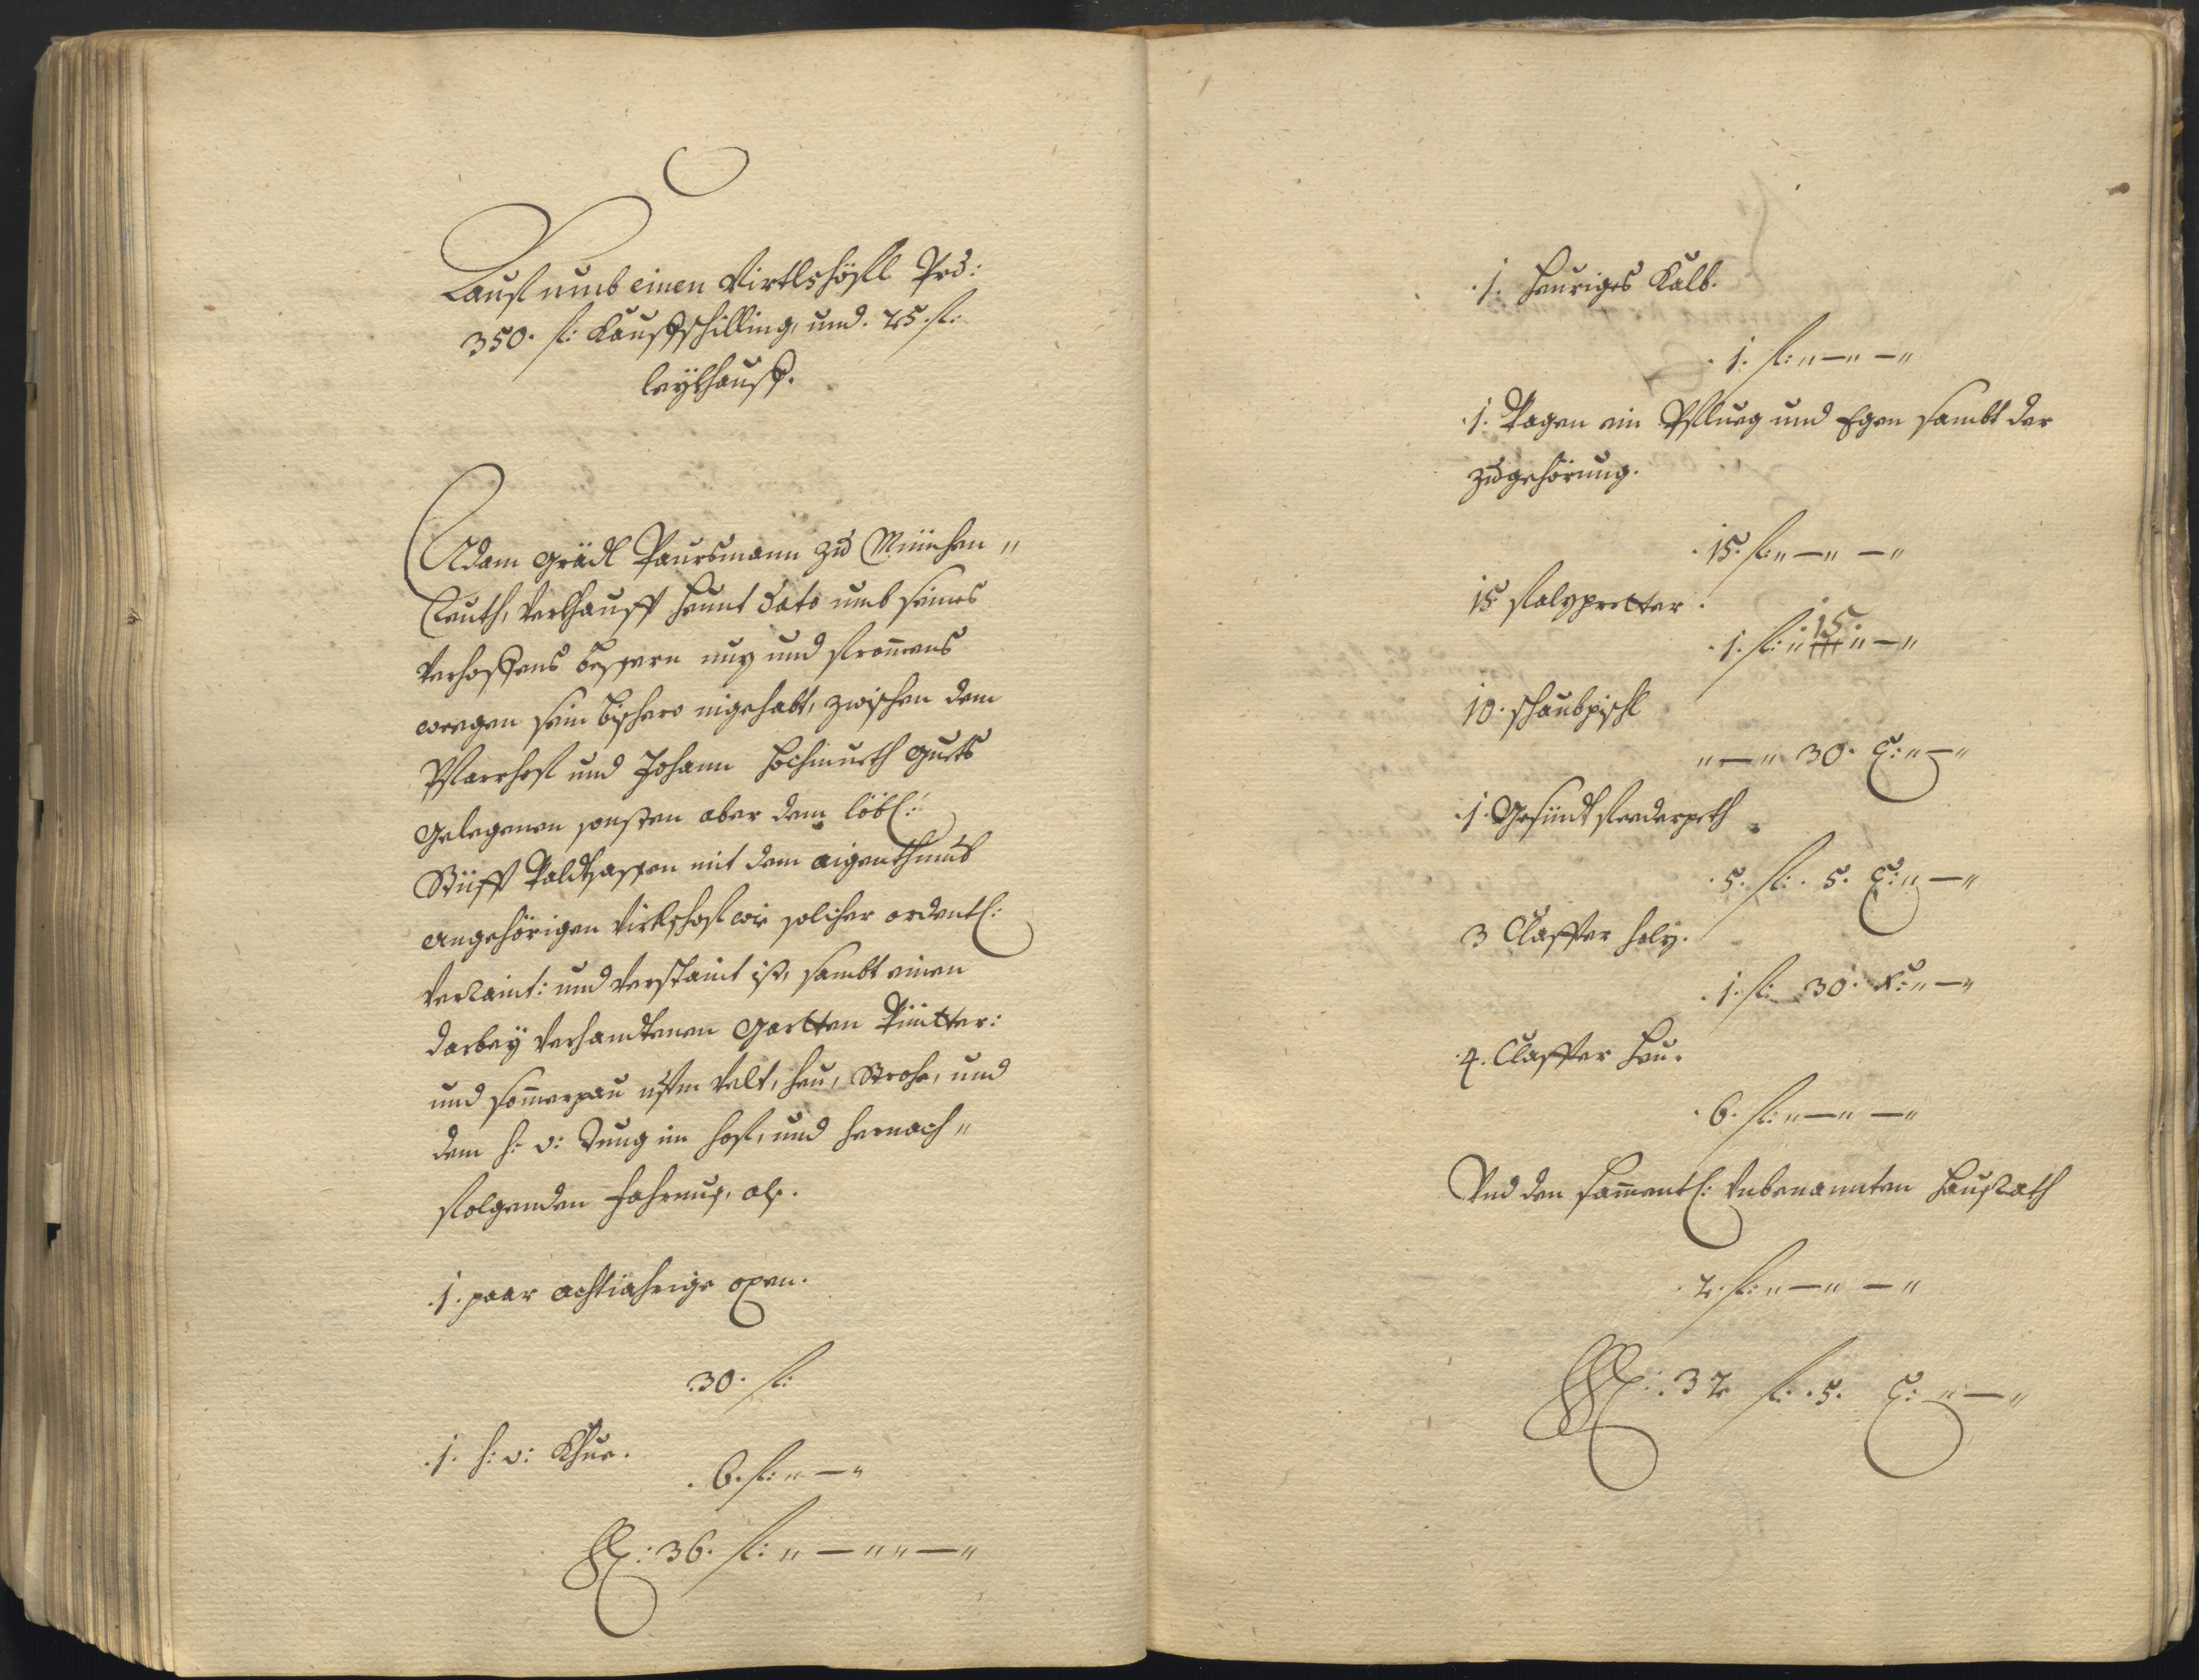 Kauf umb einen Virtlshöfl Pro:
350. fl: Kauffschilling, und. 25. fl:
leykhauff.
Adam Grädl Paursmann zu München„
reuth, verkhaufft heunt dato umb seines
verhoffens bessern nuz und fromens
weegen sein bishero ingehabt, zwischen dem
Pfarrhof und Johann Hochmuth Guets
gelegenen sonsten aber dem löbl:
Stüfft Waldsassen mit dem aigenthumb
angehörigen Virtlshof wie solcher ordentl:
verraint: und verstaint ist, sambt einen
darbey verhandtenen Gartten Wintter:
und Somerpau ufm Velt, heu, Stroh, und
dem h: v: Tung im hof, und hernach„
folgenden Fahrnus, als.
.1. paar achtiahrige oxen.
.30. fl:
.1. h: v: Khue.
.6. fl: „ — „
Lat: 36. fl: „ — „ „ — „
.1. heuriges Kalb.
.1. fl: „ — „ — „
.1. Wagen ein Pflueg und Egen sambt der
zugehörung.
.15. fl: „ — „ — „
15 falzpretter.
.1. fl: „ 15. „ — „
10. schaubpischl
„ — „ 30. x: „ — „
.1. Gesündt federpeth
.5. fl: . 5. x: „ — „
3 Claffter holz.
.1. fl: 30. x: „ — „
.4. Claffter heu.
.6. fl: „ — „ — „
Und den samentl: unbenannten haußrath
.2. fl: „ — „ — „
Lat: .32 fl: .5. x: „ — „